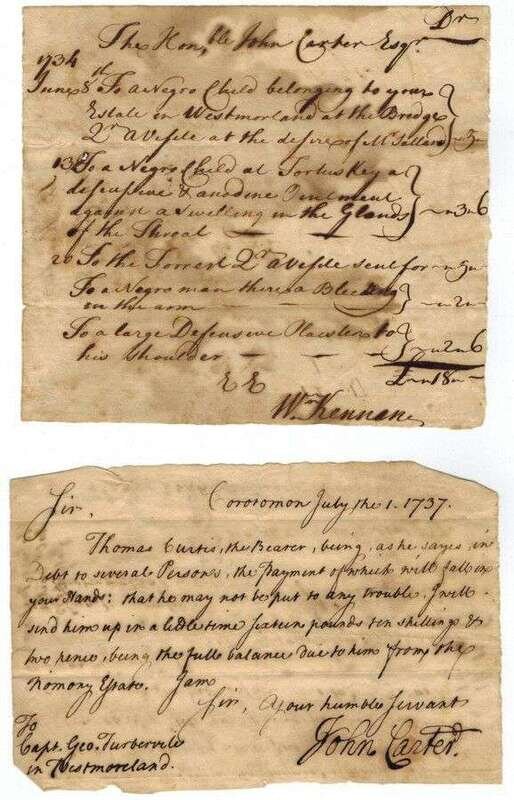 The Honble John Carter Esqr. Dr
1734
June 8th To a Negro Child belonging to your
Estate in Westmorland at the Bridge
Dr a Visite at the desire of Mr Sallard ~5~
13 To a Negro Child at Forkes Key a
defensive & anodine Ointment
against a Swelling in the Glands ~3~6
of the Throat
20 To the Forrest Dr a Visite sent for ~5~
To a Negro man there a Bleeding
in the arm ~2~
To a large Defensive Plaister to
his Shoulder ~2~6
£~18~
E E
Wm Kennan
Corotomon July the 1. 1737.
Sir,
Thomas Curtis, the Bearer, being, as he sayes, in
Debt to several Persons, the Payment of which will fall in
your Hands: that he may not be put to any trouble, I will
send him up in a little time sixteen pounds ten shillings &
two pence, being the full balance due to him from the
Nomony Estate. I am
Sir, Your humble Servant
John Carter.
To
Capt. Geo. Turbervile
in Westmoreland.